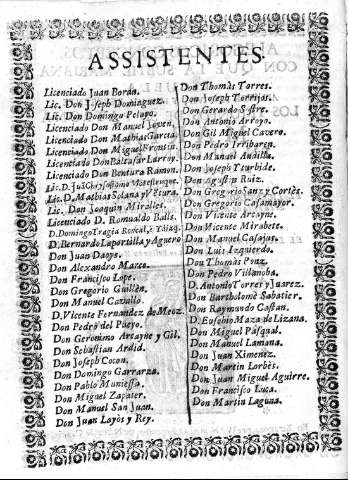 ASSISTENTES.
Licenciado Juan Boràn.
Lic. Don Joseph Dominguez.
Lic. Don Domingo Pelayo.
Licenciado Don Manuel Joven.
Licenciado Don Mathias Garcia.
Licenciado Don Miguel Frontin.
Licenciado Don Baltasar Larroy.
Licenciado Don Bentura Ramon.
Lic. D. Mathias Solana y Vẽtura.
Lic. Don Joaquin Miralles.
Licenciado D. Romualdo Balls.
D. Bernardo Laportilla y Aguero
Don Juan Daoys.
Don Alexandro Marco.
Don Francisco Lope.
Don Gregorio Guillèn.
Don Manuel Cavallo.
D. Vicente Fernandez de Meoz.
Don Pedro del Pueyo.
Don Geronimo Arcayne y Gil.
Don Sebastian Ardid.
Don Joseph Cocon.
Don Domingo Garrarza.
Don Pablo Muniessa.
Don Miguel Zapater.
Don Manuel San Juan.
Don Juan Layòs y Rey.
Don Thomàs Torres.
Don Joseph Torrijos.
Don Gerardo Sastre.
Don Antonio Arroyo.
Don Gil Miguel Cavero.
Don Pedro Irribaren.
Don Manuel Andilla.
Don Joseph Yturbide.
Don Agustin Ruiz.
Don Gregorio Sanz y Cortès.
Don Gregorio Casamayor.
Don Vicente Arcayne.
Don Vicente Mirabete.
Don Manuel Casajus.
Don Luis Izquerdo.
Don Thomàs Ponz.
Don Pedro Villanoba.
D. Antonio Torres y Juarez.
Don Bartholomè Sabatier.
Don Raymundo Castàn.
D. Eusebio Maza de Lizana.
Don Miguel Pasqual.
Don Manuel Lamana.
Don Juan Ximenez.
Don Martin Lorbès.
Don Juan Miguel Aguirre.
Don Francisco Luca.
Don Martin Laguna.